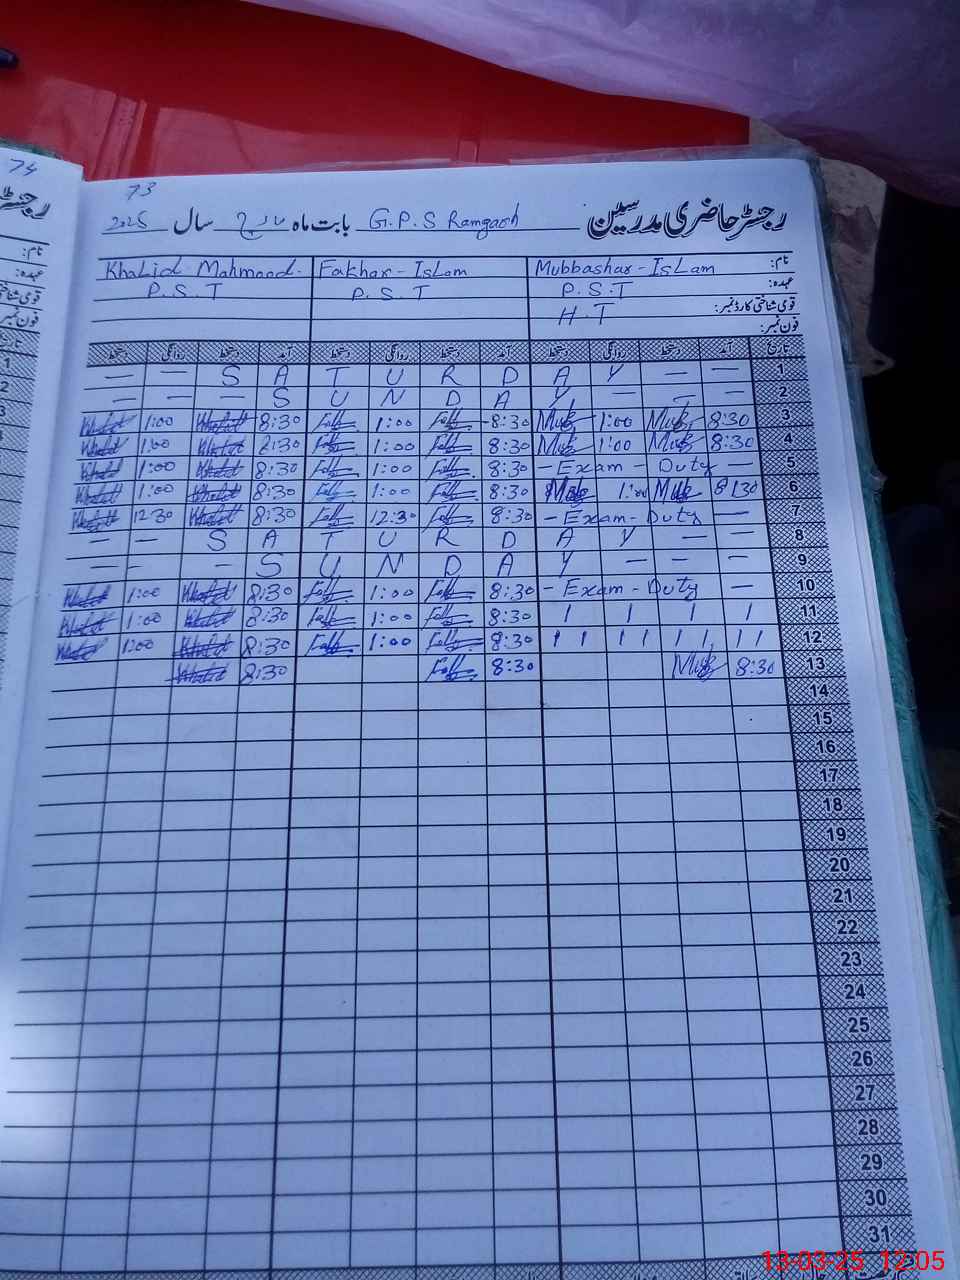 74
73
رجسٹر حاضری مدرسین G.P.S Ramgarh بابت ماہ مارچ سال 2025
نام: Mubbashar - IsLam Fakhar - IsLam Khalid Mahmood.
عہدہ: P.S.T P.S.T P.S.T
قومی شناختی کارڈ نمبر: H.T
فون نمبر:
تاریخ آمد دستخط روانگی دستخط آمد دستخط روانگی دستخط آمد دستخط روانگی دستخط
— — S A T U R D A Y — — 1
— — — S U N D A Y — — — 2
Khalid 1:00 Khalid 8:30 1:00 8:30 Mub 1:00 Mub 8:30 3
Khalid 1:00 Khalid 8:30 1:00 8:30 Mub 1:00 Mub 8:30 4
Khalid 1:00 Khalid 8:30 1:00 8:30 - Exam - Duty — 5
Khalid 1:00 Khalid 8:30 1:00 8:30 Mub 1:00 Mub 8:30 6
Khalid 12:30 Khalid 8:30 12:30 8:30 - Exam - Duty — 7
— — S A T U R D A Y — — 8
— - — S U N D A Y — — 9
Khalid 1:00 Khalid 8:30 1:00 8:30 - Exam - Duty — 10
Khalid 1:00 Khalid 8:30 1:00 8:30 \ \ \ \ 11
Khalid 1:00 Khalid 8:30 1:00 8:30 \\ \\ \\ \\ 12
Khalid 8:30 8:30 Mub 8:30 13
14
15
16
17
18
19
20
21
22
23
24
25
26
27
28
29
30
31
13-03-25 12:05